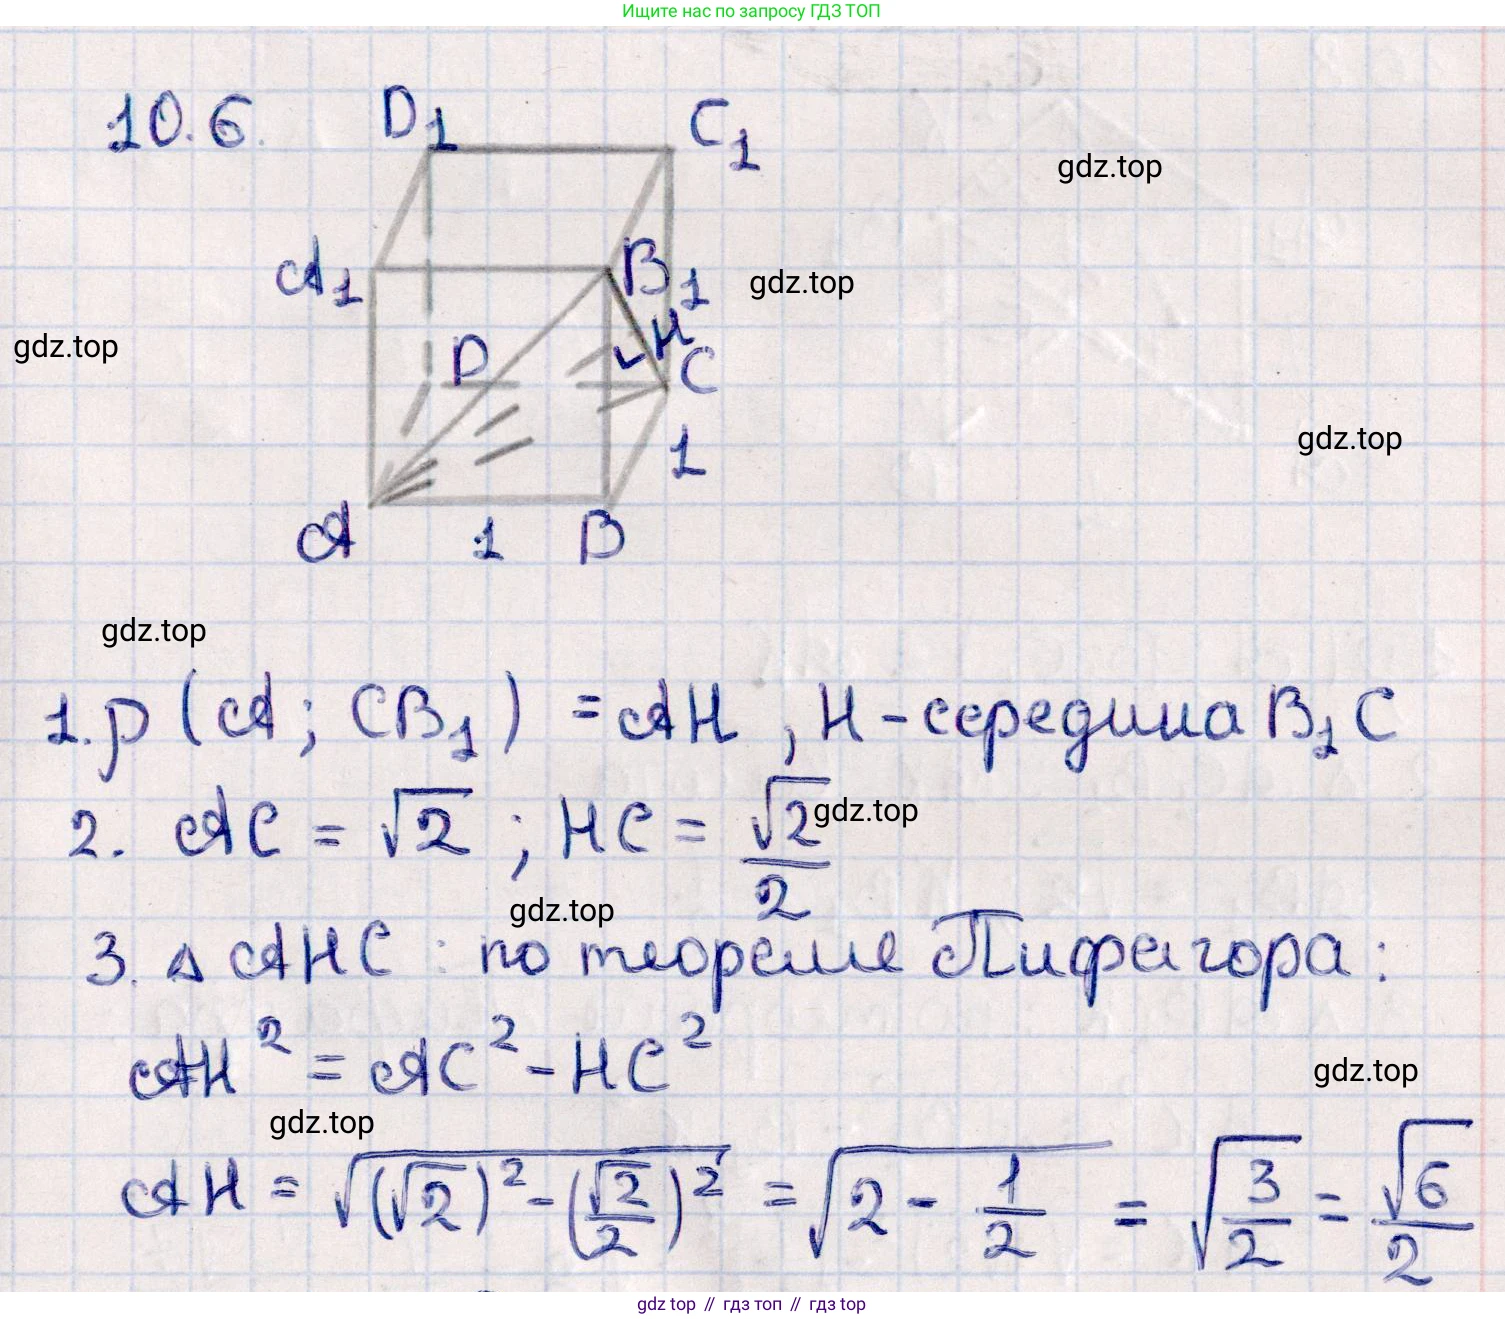 Ищите нас по запросу ГДЗ ТОП
10.6.
D₁
C₁
gdz.top
A₁
B₁
gdz.top
gdz.top
D
H
C
gdz.top
1
A
1
B
gdz.top
1. ρ (A; CB₁) = AH, H - середина B₁C
2. AC = √2; HC = √2/2
gdz.top
gdz.top
3. △ AHC: по теореме Пифагора:
AH² = AC² - HC²
gdz.top
gdz.top
AH = √((√2)² - (√2/2)²) = √(2 - 1/2) = √(3/2) = √6/2
gdz top // гдз топ // гдз top